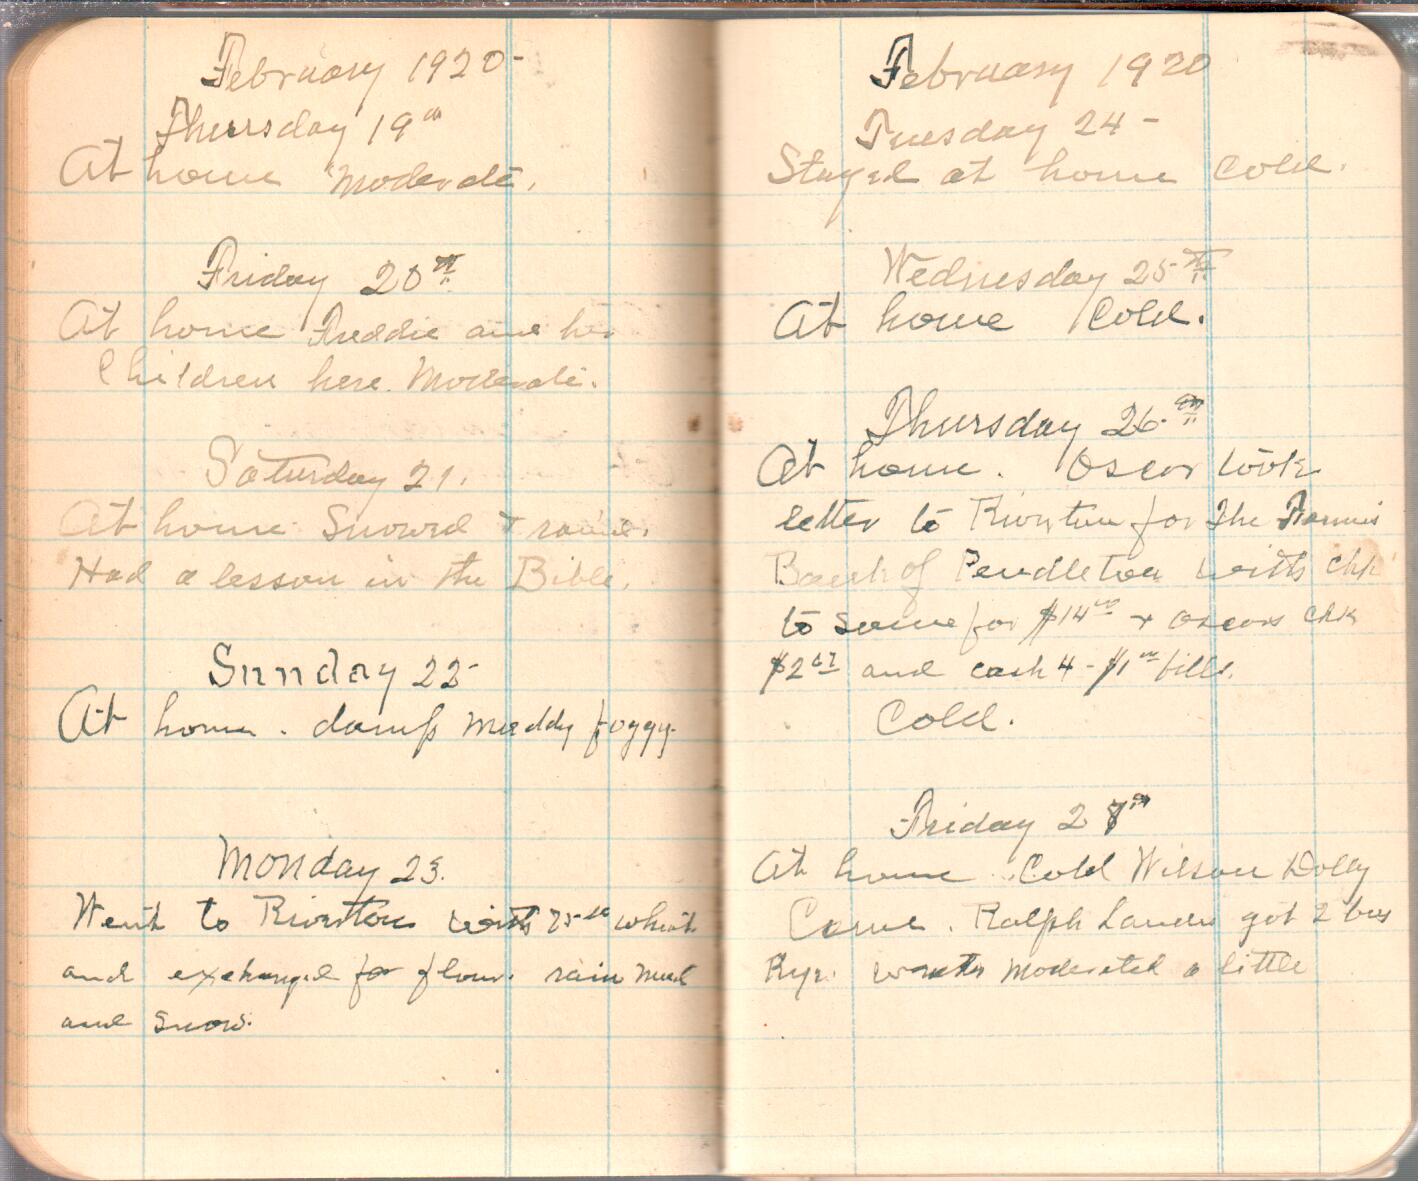 February 1920-
Thursday 19th
At home Moderate.
Friday 20th
At home Freddie and her
Children here. Moderate.
Saturday 21.
At home Snowed + rained.
Had a lesson in the Bible.
Sunday 22
At home. damp Muddy foggy.
Monday 23.
Went to with wheat
and exchanged for flour. rain mud
and snow.
February 1920
Tuesday 24-
Stayed at home Cold.
Wednesday 25th
At home Cold.
Thursday 26th
At home. Oscar took
letter to for The
Bank of Pendleton with chk
to same for $14.00 + Oscars chk
$2.67 and cash 4-$1.00 bills.
Cold.
Friday 27th
At home. Cold Wilson Dolly
Came. Ralph got 2 bus
Rye. moderated a little